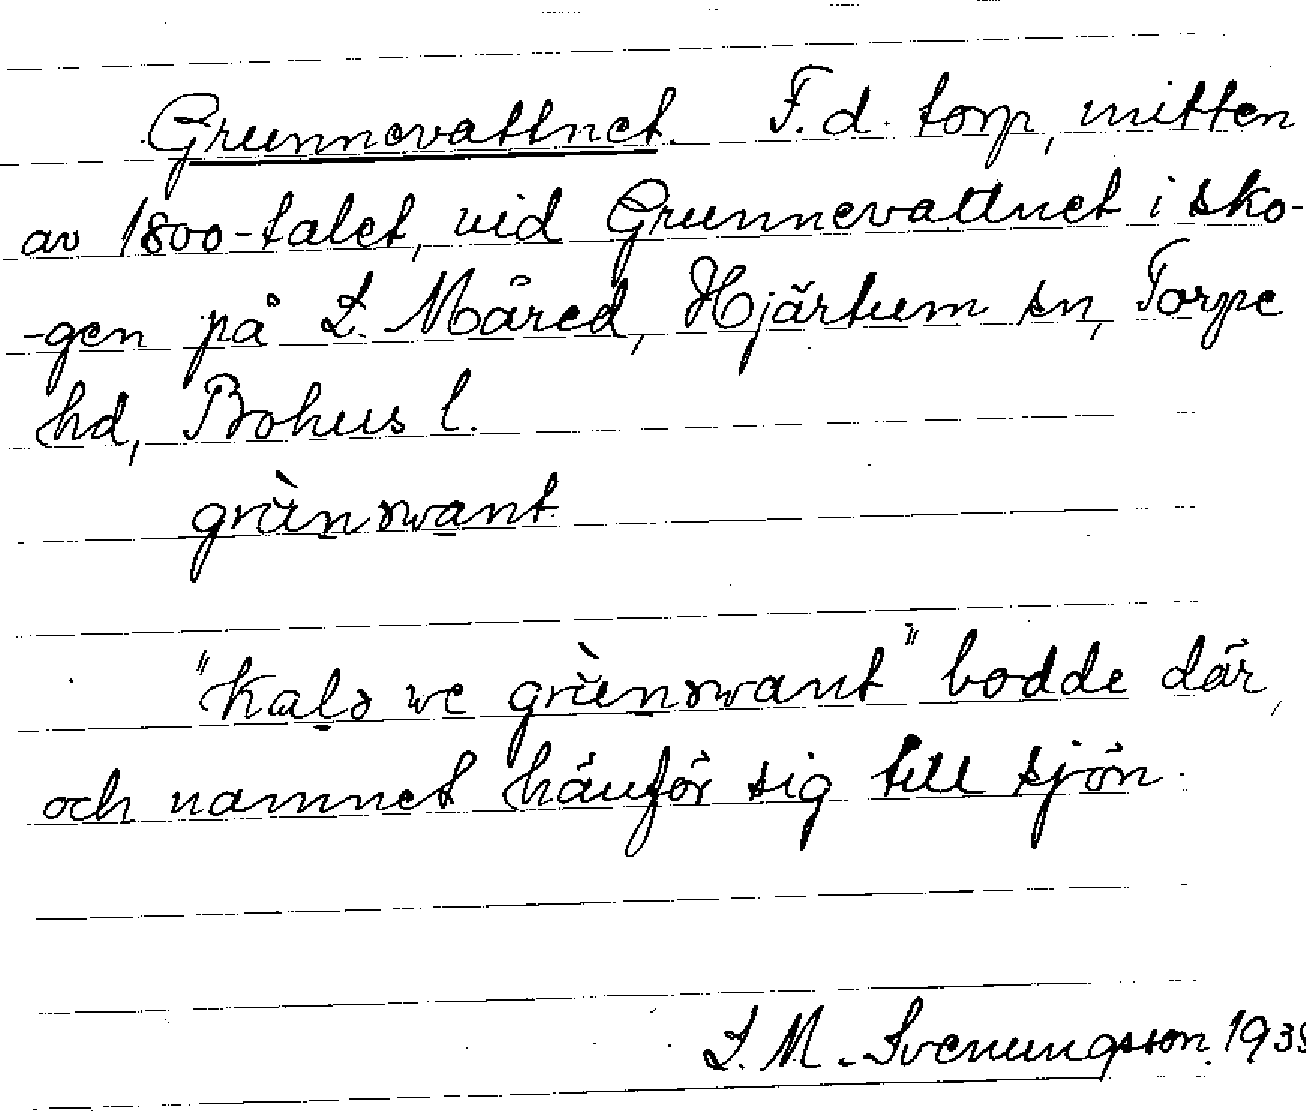 Grunnevattnet. F.d. torp, mitten
av 1800-talet, vid Grunnevattnet i sko-
-gen på L. Måred, Hjärtum sn, Torpe
hd, Bohus l.
grùnəvant
"Kalə ve grùnəvant" bodde där,
och namnet hänför sig till sjön.
S. M. Svenungsson.